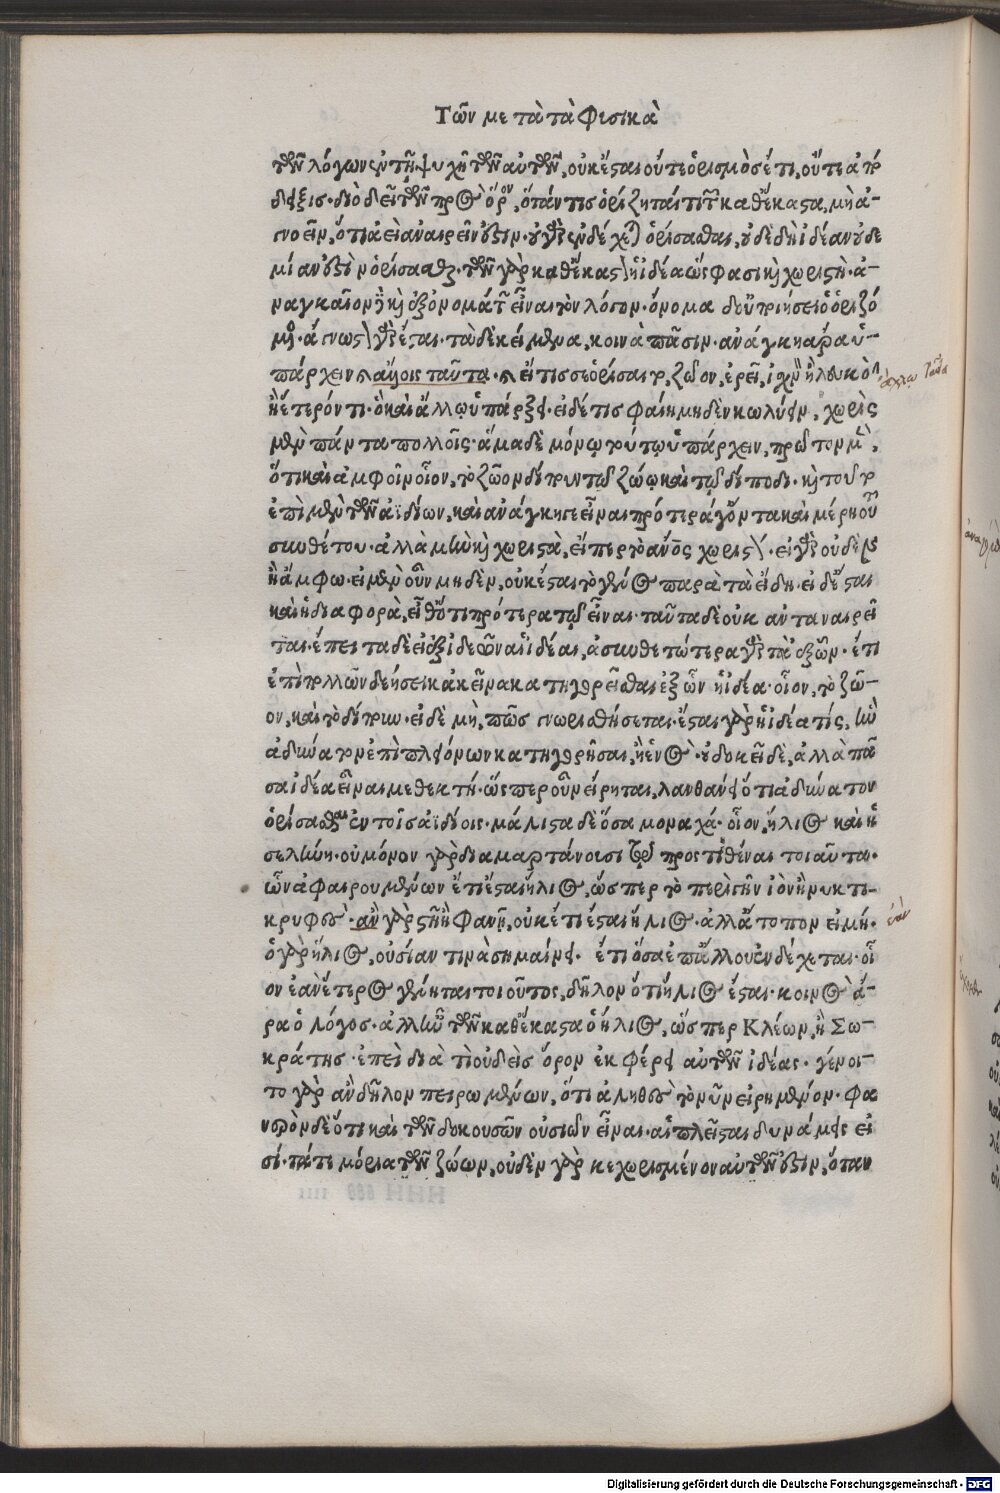 Τῶν μετὰ τὰ Φυσικὰ
τῶν λόγων ἐν τῇ ψυχῇ τῶν αὐτῶν, οὐκ ἔσται οὔτε ὁρισμὸς ἔτι, οὔτε ἀπό
δειξις. διὸ δεῖ τῶν πρὸς ὅρον, ὅταν τις ὁρίζηταί τι τῶν καθ᾽ ἕκαστα, μὴ ἀ-
γνοεῖν, ὅτι ἀεὶ ἀναιρεῖν ἔστιν. οὐ γὰρ ἐνδέχεται ὁρίσασθαι, οὐδὲ δὴ ἰδέαν οὐδε
μίαν ἔστιν ὁρίσασθαι. τῶν γὰρ καθ᾽ ἕκαστον ἡ ἰδέα ὥς φασι καὶ χωριστή. ἀ-
ναγκαῖον δὲ καὶ ἐξ ὀνομάτων εἶναι τὸν λόγον. ὄνομα δ᾽ οὐ ποιήσει ὁ ὁριζό
μενος. ἄγνωστον γὰρ ἔσται. τὰ δὲ κείμενα, κοινὰ πᾶσιν. ἀνάγκη ἄρα ὑ-
πάρχειν καὶ ἄλλοις ταῦτα. καὶ εἴ τις σε ὁρίσαιτο, ζῷον, ἐρεῖ, ἰσχνὸν ἢ λευκὸν
ἢ ἕτερόν τι. ὃ καὶ ἄλλῳ ὑπάρξει. εἰ δέ τις φαίη μηδὲν κωλύειν, χωρὶς
μὲν πάντα πολλοῖς. ἅμα δὲ μόνῳ τούτῳ ὑπάρχειν, πρῶτον μὲν,
ὅτι καὶ ἀμφοῖν οἷον, τὸ ζῶον δίπουν τῷ ζώῳ καὶ τῷ δίποδι. καὶ τοῦτο
ἐπὶ μὲν τῶν ἀϊδίων, καὶ ἀνάγκη γε εἶναι πρότερά γ᾽ ὄντα καὶ μέρη τοῦ
συνθέτου. ἀλλὰ μὴν καὶ χωριστὰ, εἴπερ τὸ ἄνθρωπος χωριστόν. εἰ γὰρ οὐδέτερον
ἢ ἄμφω. εἰ μὲν οὖν μηδὲν, οὐκ ἔσται τὸ γένος παρὰ τὰ εἴδη. εἰ δ᾽ ἔσται
καὶ ἡ διαφορὰ, εἶθ᾽ ὅτι πρότερα τῷ εἶναι. ταῦτα δὲ οὐκ ἀνταναιρεῖ
ται. ἔπειτα δὲ εἰ ἐξ ἰδεῶν αἱ ἰδέαι, ἀσυνθετώτερα γὰρ τὰ ἐξ ὧν. ἔτι
ἐπὶ πολλῶν δεήσει κἀκεῖνα κατηγορεῖσθαι ἐξ ὧν ἡ ἰδέα. οἷον, τὸ ζῶ-
ον, καὶ τὸ δίπουν. εἰ δὲ μὴ, πῶς γνωρισθήσεται. ἔσται γὰρ ἡ ἰδέα τίς, ἣν
ἀδύνατον ἐπὶ πλειόνων κατηγορῆσαι, ἢ ἑνός. οὐ δοκεῖ δὲ, ἀλλὰ πᾶ
σα ἰδέα εἶναι μεθεκτή. ὥσπερ οὖν εἴρηται, λανθάνει ὅτι ἀδύνατον
ὁρίσασθαι ἐν τοῖς ἀϊδίοις. μάλιστα δὲ ὅσα μοναχά. οἷον, ἥλιος καὶ ἡ
σελήνη. οὐ μόνον γὰρ διαμαρτάνουσι τῷ προστιθέναι τοιαῦτα.
ὧν ἀφαιρουμένων ἔτι ἔσται ἥλιος, ὥσπερ τὸ περὶ γῆν ἰὸν ἢ νυκτι-
κρυφές. ἂν γὰρ στῇ ἢ φανῇ, οὐκέτι ἔσται ἥλιος. ἀλλ᾽ ἄτοπον εἰ μή.
ὁ γὰρ ἥλιος, οὐσίαν τινὰ σημαίνει. ἔτι ὅσα ἐπ᾽ ἄλλου ἐνδέχεται. οἷ
ον ἐὰν ἕτερος γένηται τοιοῦτος, δῆλον ὅτι ἥλιος ἔσται. κοινὸς ἄ-
ρα ὁ λόγος. ἀλλ᾽ ἦν τῶν καθ᾽ ἕκαστα ὁ ἥλιος, ὥσπερ Κλέων, ἢ Σω-
κράτης. ἐπεὶ διὰ τὶ οὐδεὶς ὅρον ἐκφέρει αὐτῶν ἰδέας. γένοι-
το γὰρ ἂν δῆλον πειρωμένων, ὅτι ἀληθὲς τὸ νῦν εἰρημένον. φα
νερὸν δὲ ὅτι καὶ τῶν δοκουσῶν οὐσιῶν εἶναι. αἱ πλεῖσται δυνάμεις εἰ
σί. τά τε μόρια τῶν ζώων, οὐδὲν γὰρ κεχωρισμένον αὐτῶν ἔστιν, ὅταν
ἄλλῳ ταῦτα
ἐὰν
Digitalisierung gefördert durch die Deutsche Forschungsgemeinschaft - DFG